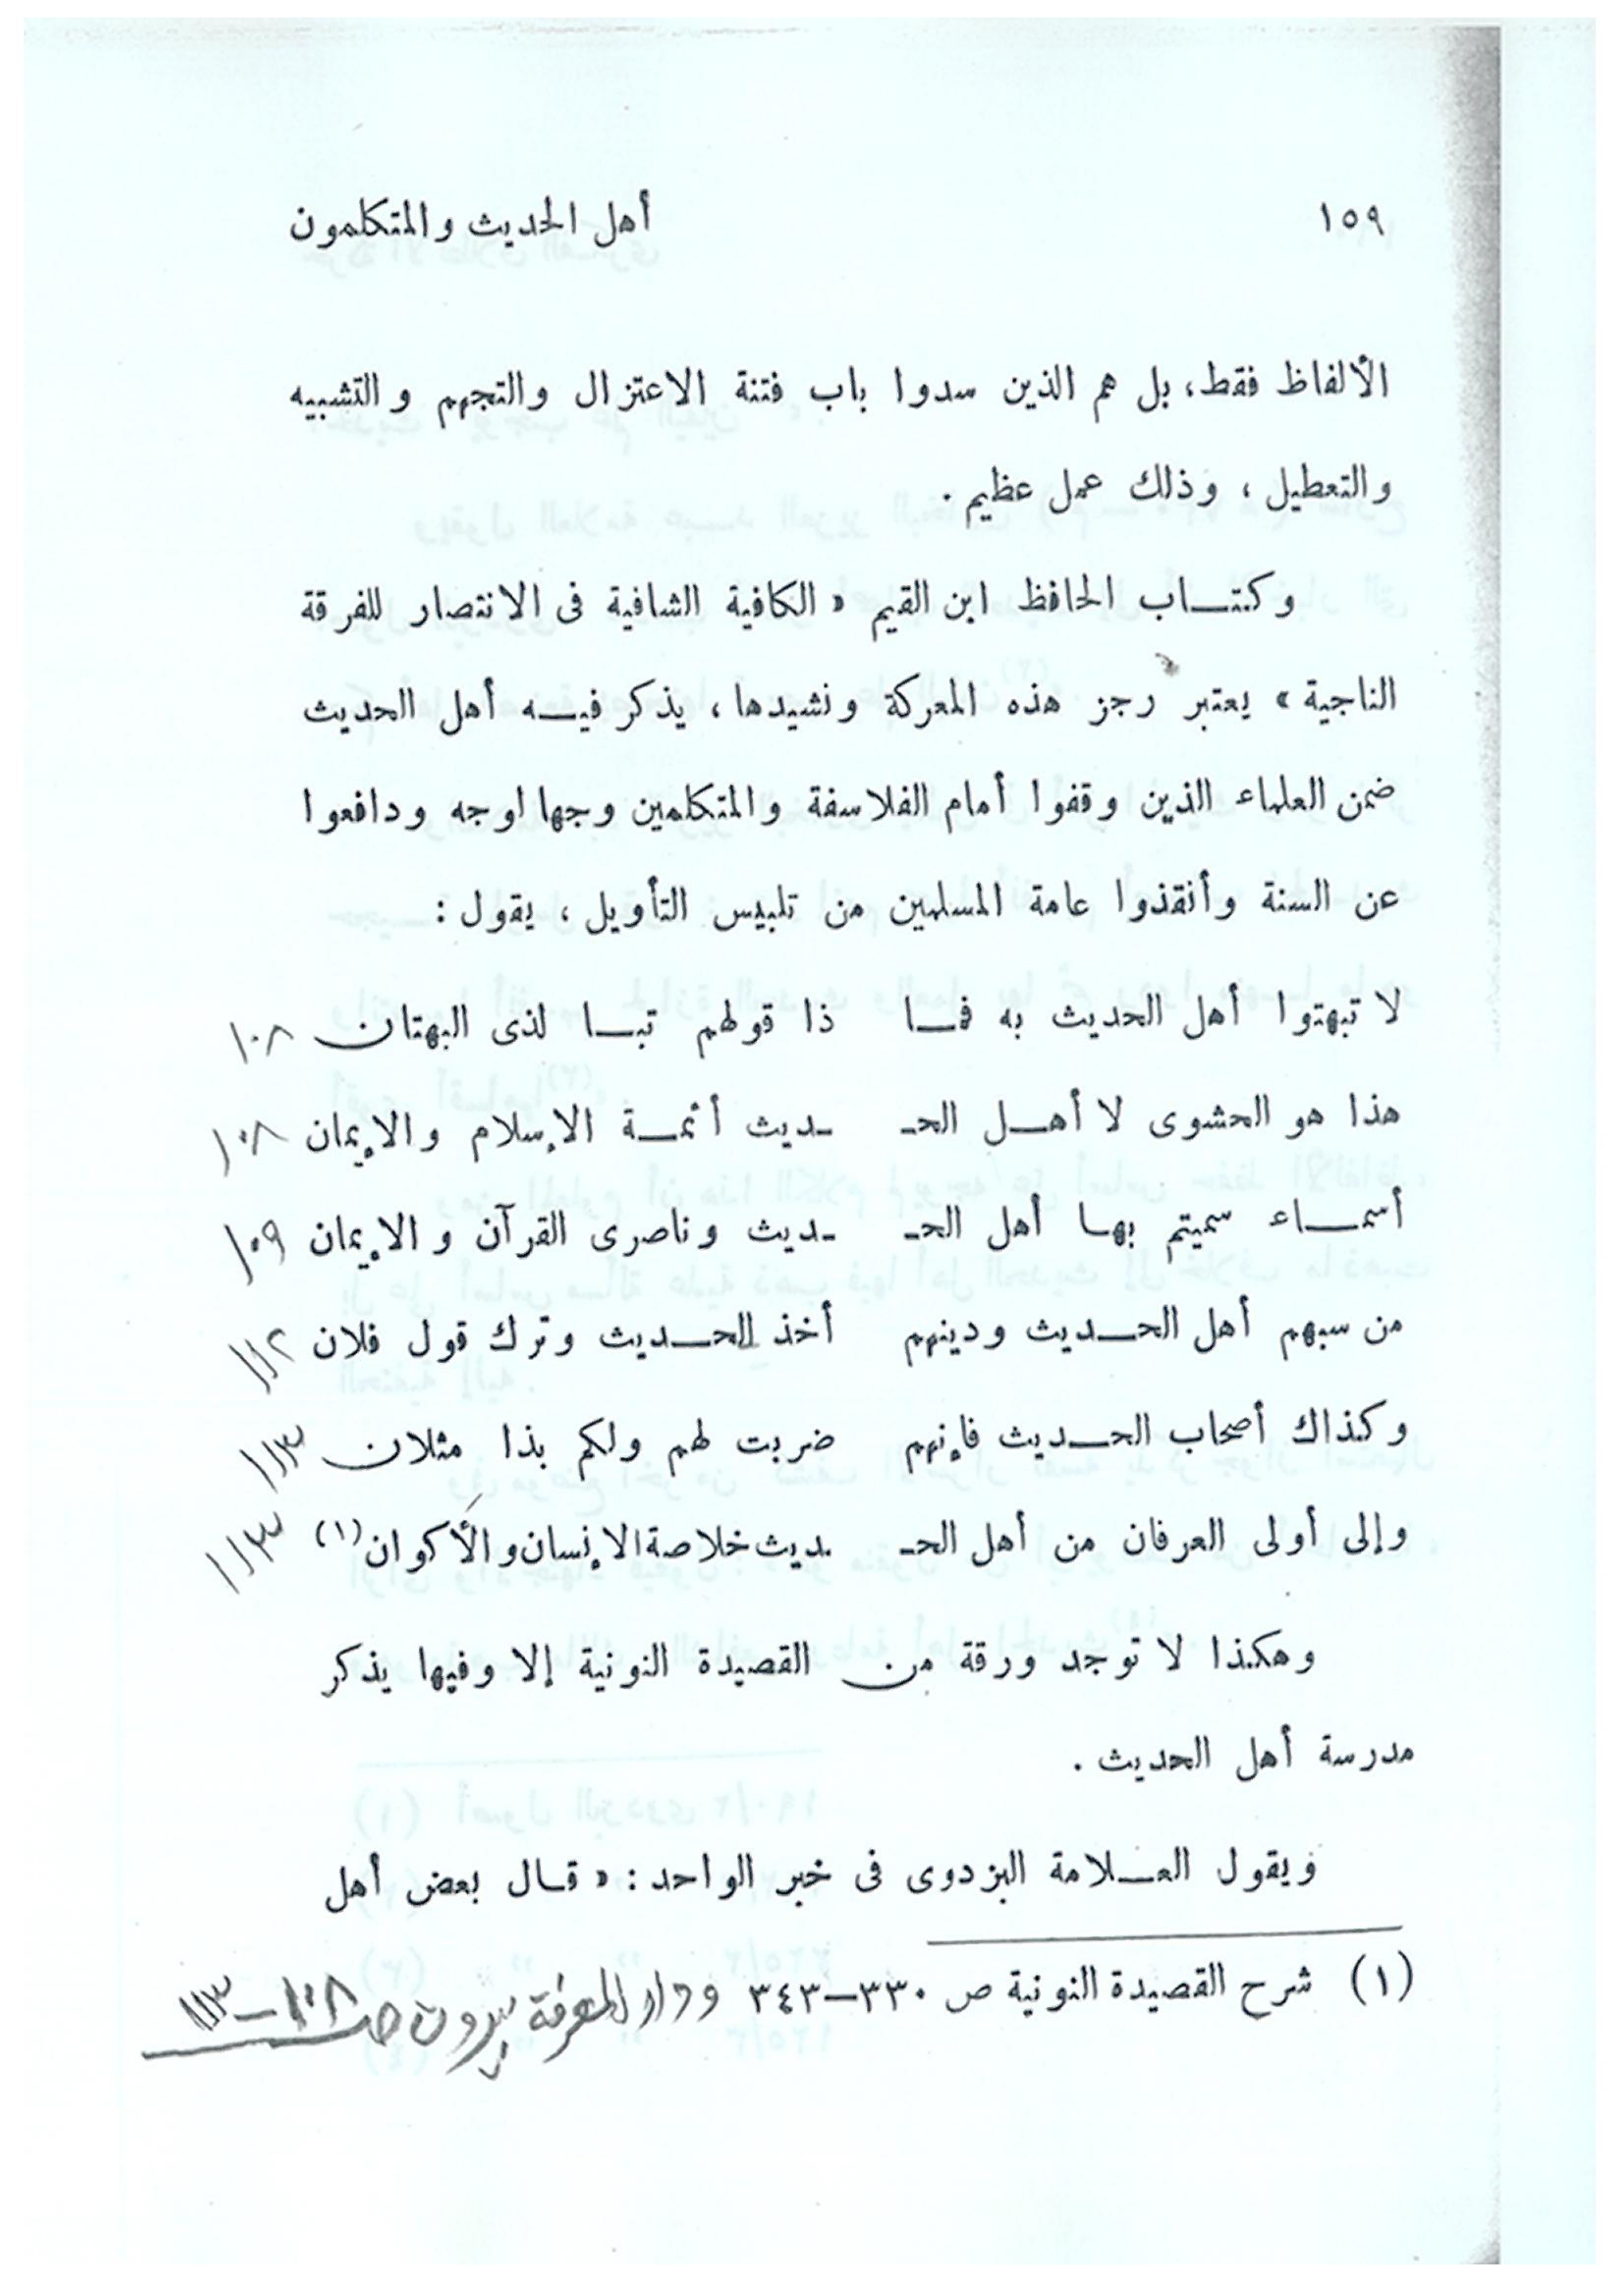 ١٥٩ أهل الحديث والمتكلمون
الألفاظ فقط، بل هم الذين سدوا باب فتنة الاعتزال والتجهم والتشبيه
والتعطيل، وذلك عمل عظيم.
وكتاب الحافظ ابن القيم « الكافية الشافية فى الانتصار للفرقة
الناجية » يعتبر رجز هذه المعركة ونشيدها، يذكر فيه أهل الحديث
ضمن العلماء الذين وقفوا أمام الفلاسفة والمتكلمين وجها لوجه ودافعوا
عن السنة وأنقذوا عامة المسلمين من تلبيس التأويل، يقول :
لا تبهتوا أهل الحديث به فما ذا قولهم تبا لذى البهتان ١٠٨
هذا هو الحشوى لا أهل الحـ ـديث أئمة الإسلام والإيمان ١٠٨
أسماء سميتم بها أهل الحـ ـديث وناصرى القرآن والإيمان ١٠٩
من سبهم أهل الحديث ودينهم أخذ الحديث وترك قول فلان ١١٢
وكذاك أصحاب الحديث فإنهم ضربت لهم ولكم بذا مثلان ١١٣
وإلى أولى العرفان من أهل الحـ ـديث خلاصة الإنسان والأكوان (١) ١١٣
وهكذا لا توجد ورقة من القصيدة النونية إلا وفيها يذكر
مدرسة أهل الحديث.
ويقول العلامة البزدوى فى خبر الواحد : « قال بعض أهل
(١) شرح القصيدة النونية ص ٣٣٠-٣٤٣ ودار المعرفة بيروت صـ ١٠٨-١١٣